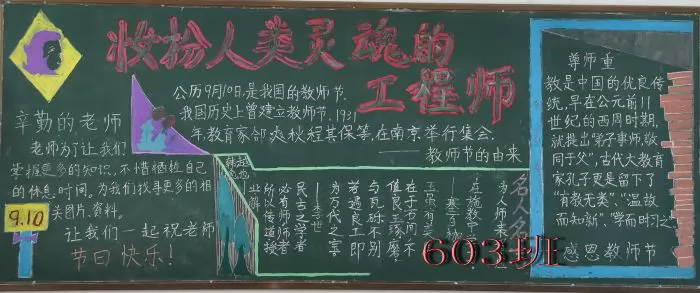 妆扮人类灵魂的
工程师
辛勤的老师
老师为了让我们
掌握更多的知识,不惜牺牲自己
的休息时间。为我们找寻更多的相
关图片、资料。
让我们一起祝老师
节日快乐!
9.10
公历9月10日,是我国的教师节,
我国历史上曾建立教师节,1931
年教育家邰爽秋程其保等,在南京举行集会,
——教师节的由来
名人名
为人师表
在于石间不
值良玉琢磨
与瓦砾不别
为万代之宝
民吉之学者
必有师师者
所以传道授
尊师重
教是中国的优良传
统,早在公元前11
世纪的西周时期,
就提出“弟子事师,敬
同于父”,古代大教育
家孔子更是留下了
“有教无类”、“温故
而知新”、“学而时习之”
感恩教师节
603班